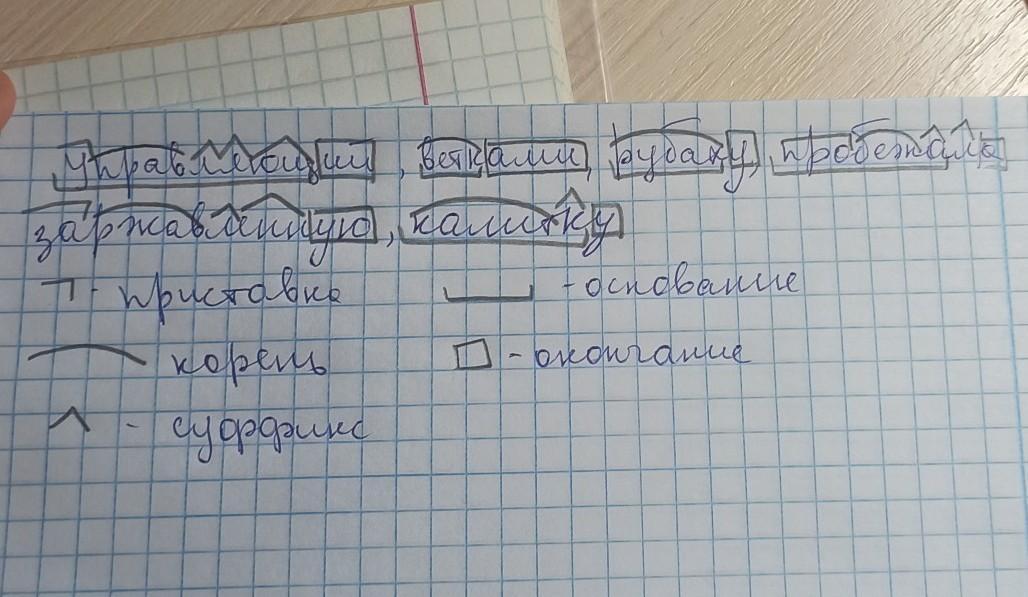 управляющий, ветками, рубаху, пробежала
заржавленную, калитку
- приставка - основание
корень - окончание
- суффикс